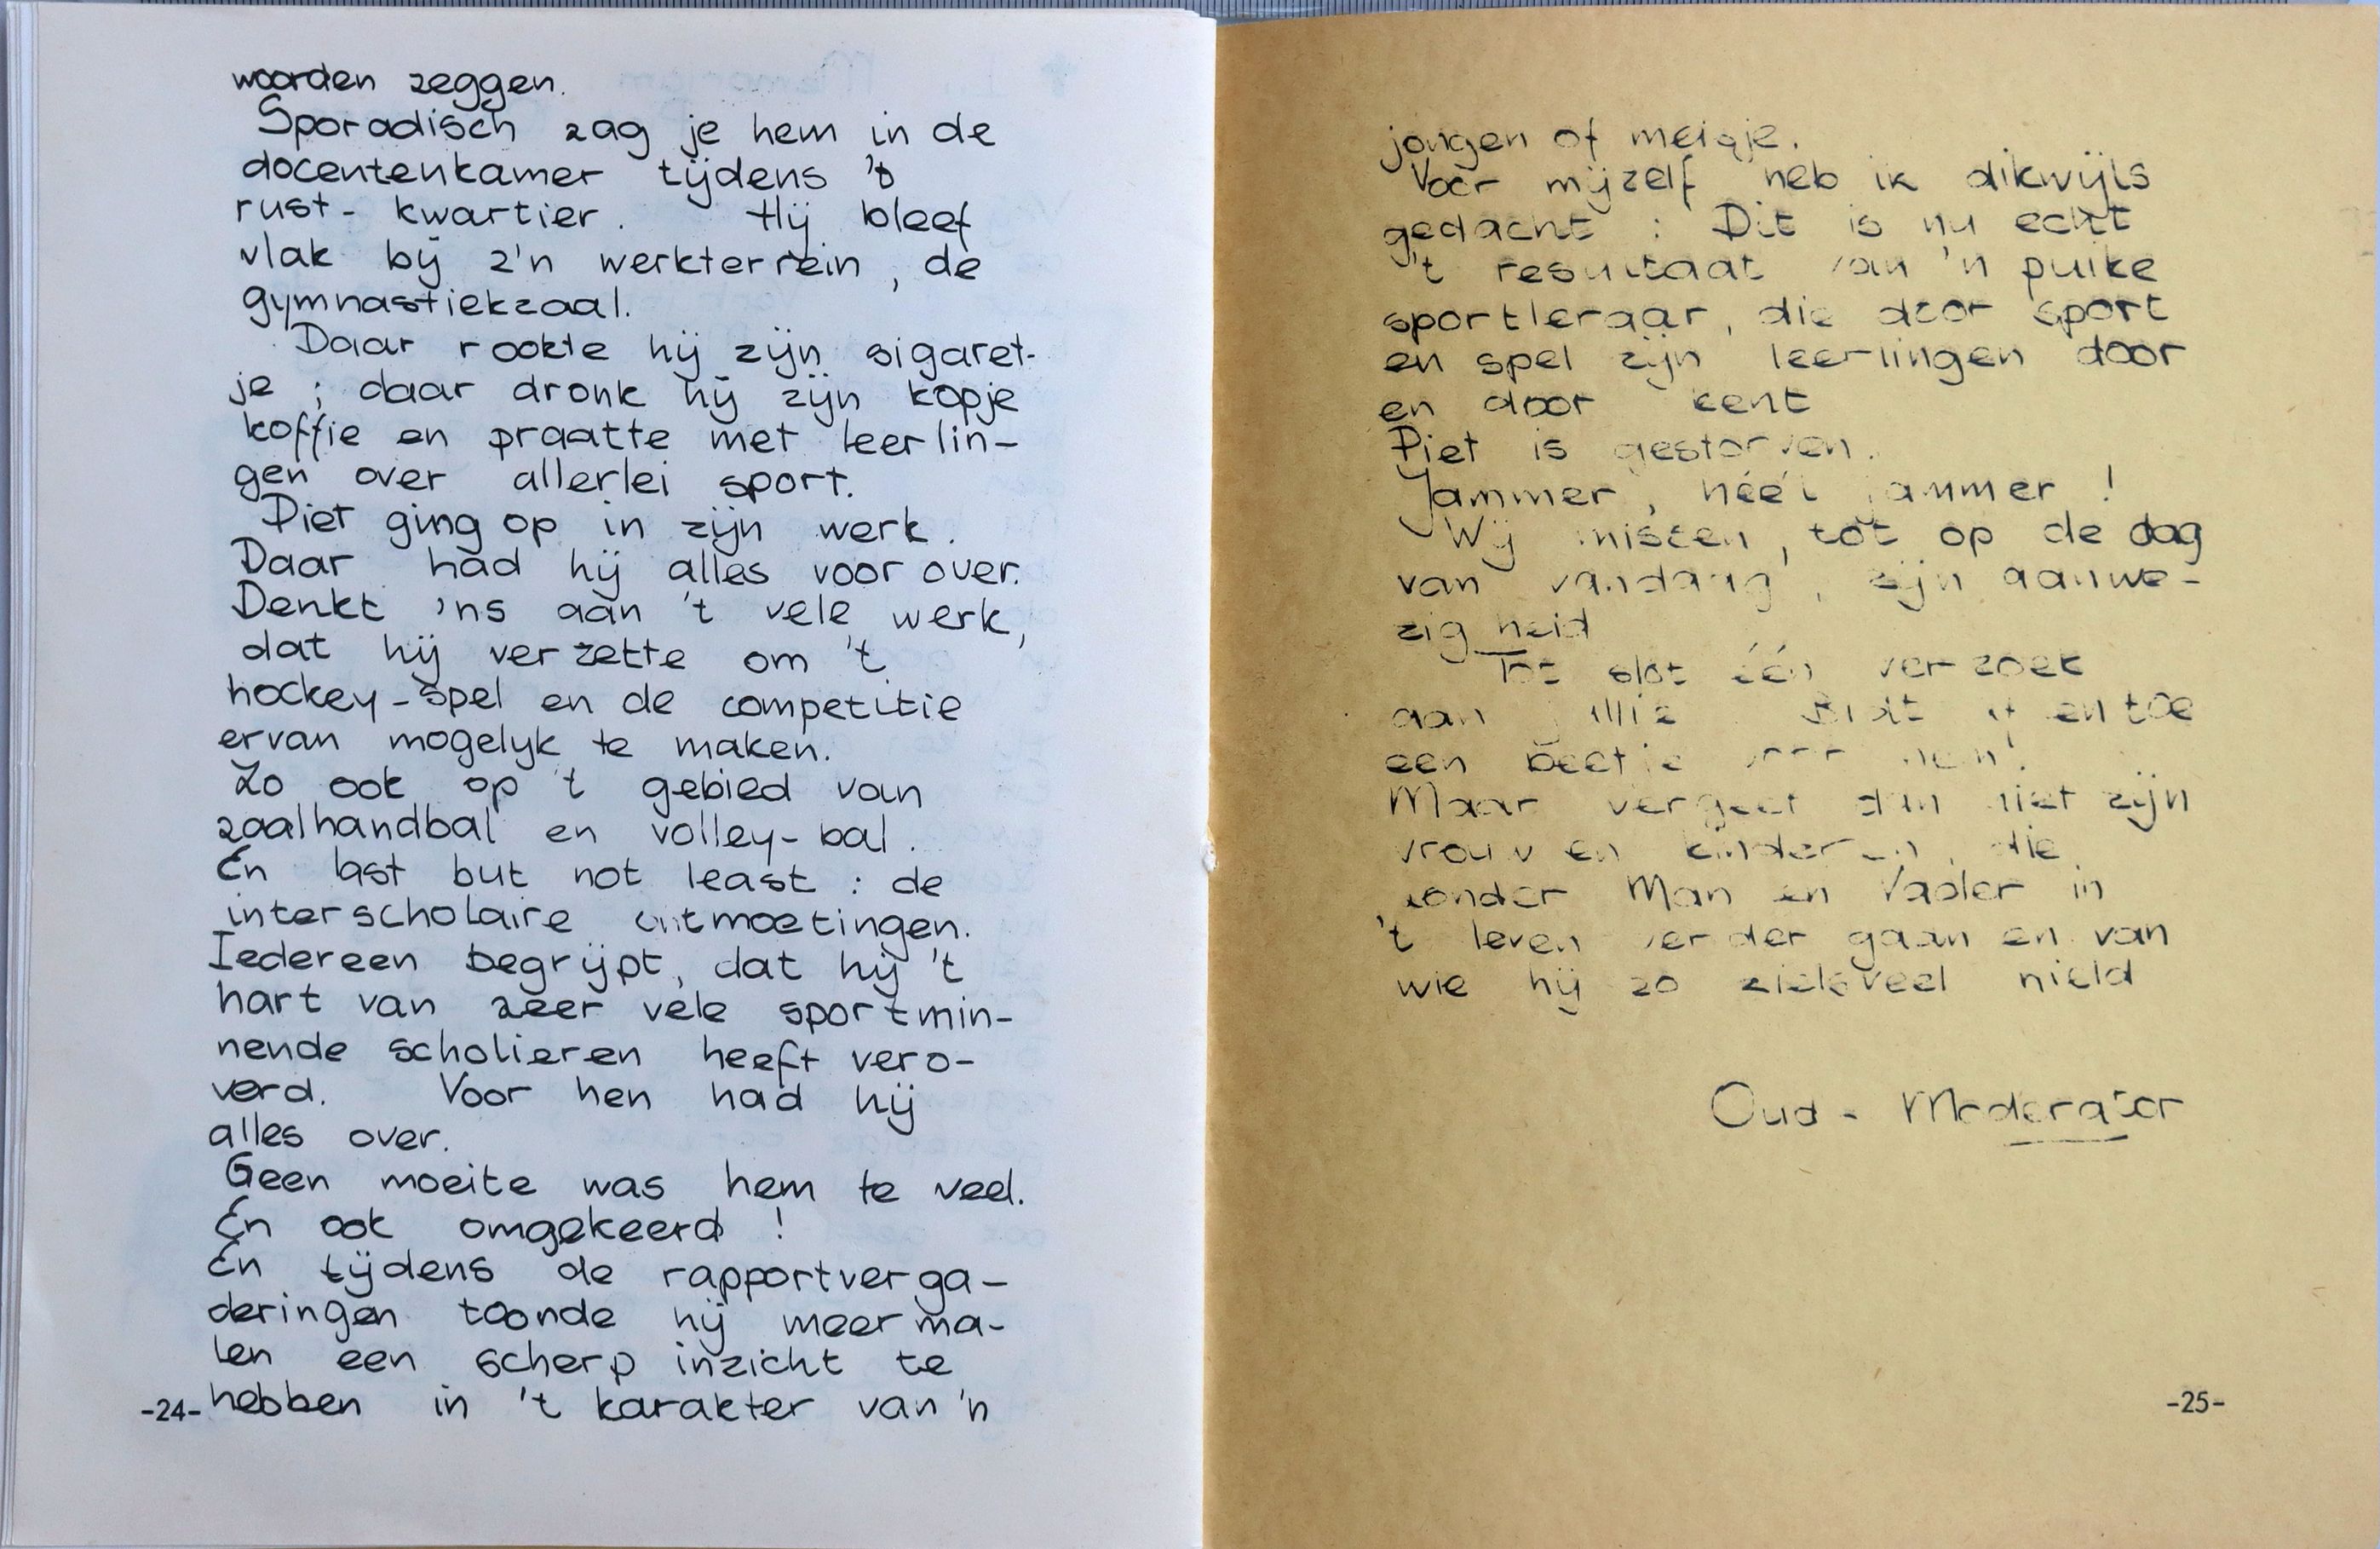 woorden zeggen.
Sporadisch zag je hem in de
docentenkamer tijdens 't
rust- kwartier. Hij bleef
vlak bij z'n werkterrein, de
gymnastiekzaal.
Daar rookte hij zijn sigaret-
je ; daar dronk hij zijn kopje
koffie en praatte met leerlin-
gen over allerlei sport.
Piet ging op in zijn werk.
Daar had hij alles voor over.
Denkt 'ns aan 't vele werk,
dat hij verzette om 't
hockey-spel en de competitie
ervan mogelijk te maken.
Zo ook op 't gebied van
zaalhandbal en volley-bal.
En last but not least : de
interscholaire ontmoetingen.
Iedereen begrijpt, dat hij 't
hart van zeer vele sportmin-
nende scholieren heeft vero-
verd. Voor hen had hij
alles over.
Geen moeite was hem te veel.
En ook omgekeerd !
En tijdens de rapportverga-
deringen toonde hij meerma-
len een scherp inzicht te
hebben in 't karakter van 'n
-24-
jongen of meisje.
Voor mijzelf heb ik dikwijls
gedacht : Dit is nu echt
't resultaat van 'n puike
sportleraar, die door sport
en spel zijn leerlingen door
en door kent
Piet is gestorven.
Jammer, héél jammer !
Wij missen, tot op de dag
van vandaag, zijn aanwe-
zigheid
Tot slot één verzoek
aan jullie Bidt af en toe
een beetje voor hem!
Maar vergeet dan niet zijn
vrouw en kinderen, die,
zonder Man en Vader in
't leven verder gaan en van
wie hij zo zielsveel hield
Oud - Moderator
-25-